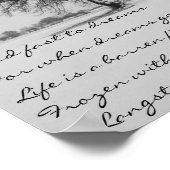 d fast to dreams
or when dreams go
Life is a barren f
Frozen with
Langst